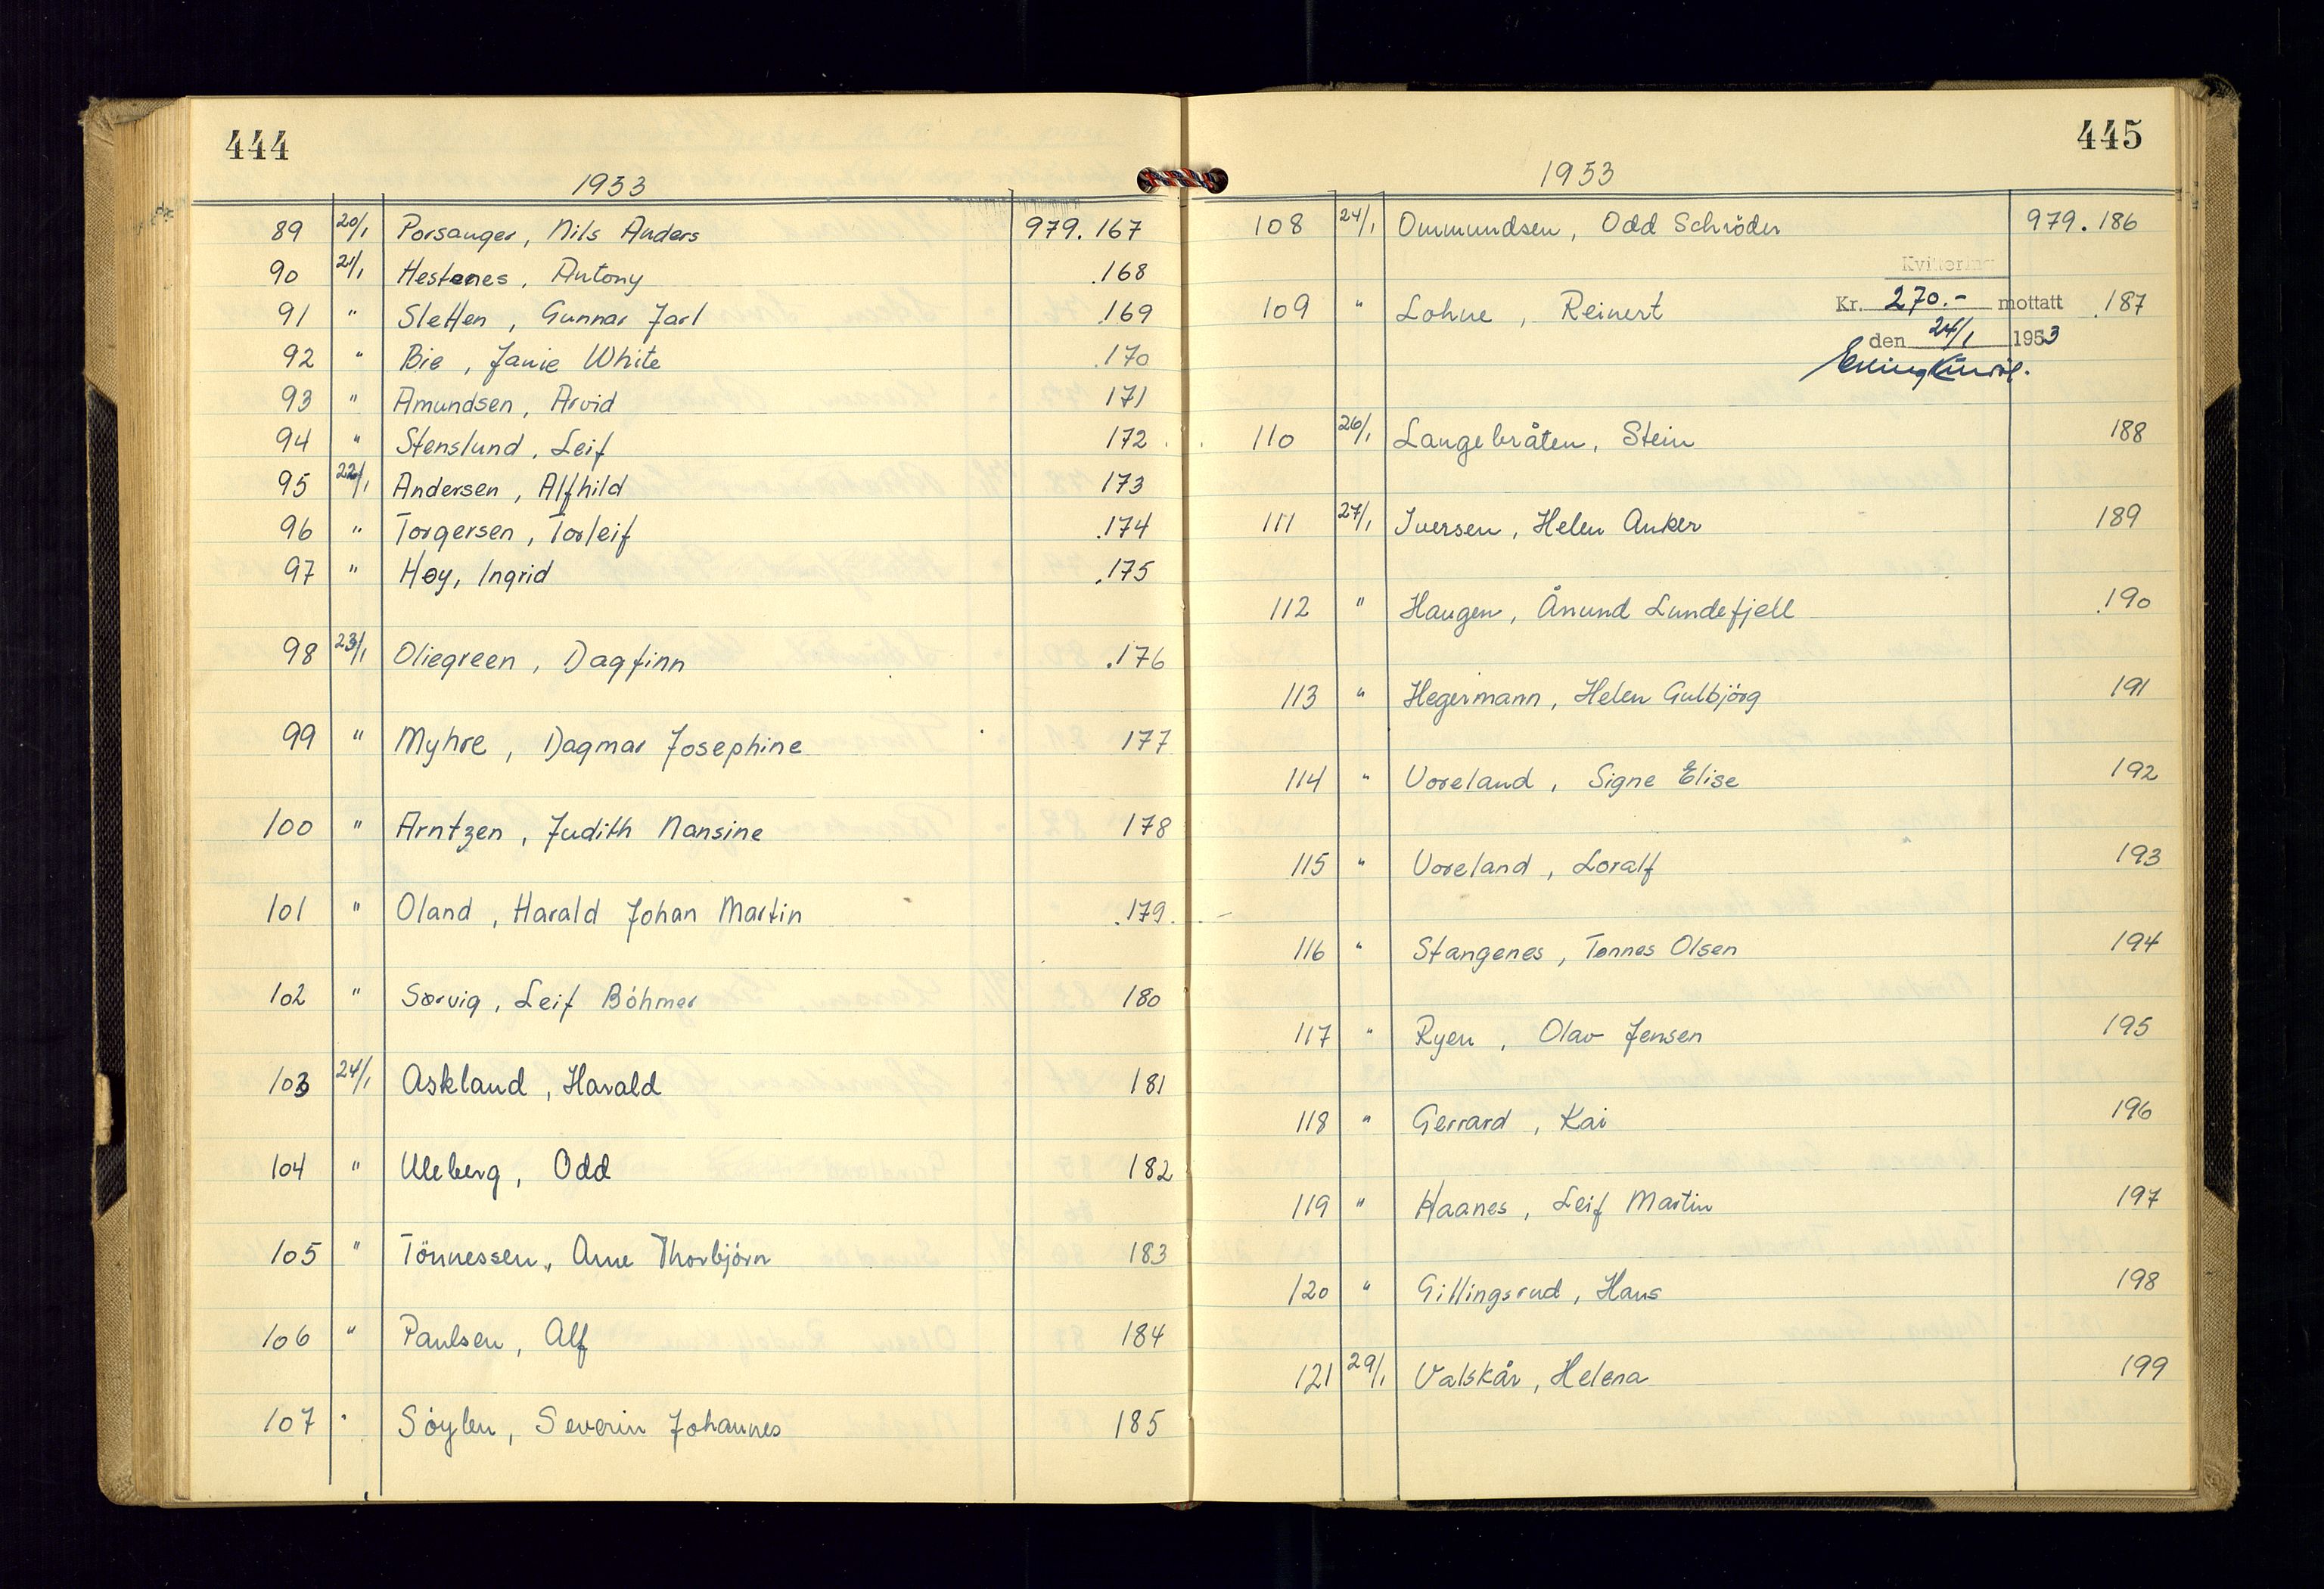 444
1953
89 20/1 Porsanger, Nils Anders 979.167
90 21/1 Hestenes, Antony .168
91 " Sletten, Gunnar Jarl .169
92 " Bie, Janie White .170
93 " Amundsen, Arvid 171
94 " Stenslund, Leif 172
95 22/1 Andersen, Alfhild 173
96 " Torgersen, Torleif .174
97 " Høy, Ingrid .175
98 23/1 Oliegreen, Dagfinn .176
99 " Myhre, Dagmar Josephine 177
100 " Arntzen, Judith Nansine 178
101 " Oland, Harald Johan Martin .179.
102 " Sørvig, Leif Böhmer 180
103 24/1 Askland, Harald 181
104 " Uleberg, Odd 182
105 " Tönnessen, Arne Thorbjörn 183
106 " Paulsen, Alf 184
107 " Söylen, Severin Johannes 185
445
1953
108 24/1 Ommundsen, Odd Schröder 979.186
Kvittering
109 " Lohne, Reinert Kr. 270.- mottatt .187
den 24/1 1953
110 26/1 Langebråten, Stein 188
111 27/1 Iversen, Helen Anker 189
112 " Haugen, Ånund Lundefjell .190
113 " Hegermann, Helen Gulbjörg 191
114 " Voreland, Signe Elise 192
115 " Voreland, Loralf 193
116 " Stangenes, Tønnes Olsen 194
117 " Ryen, Olav Jensen 195
118 " Gerrard, Kai 196
119 " Haanes, Leif Martin 197
120 " Gillingsrud, Hans 198
121 29/1 Valskår, Helena 199